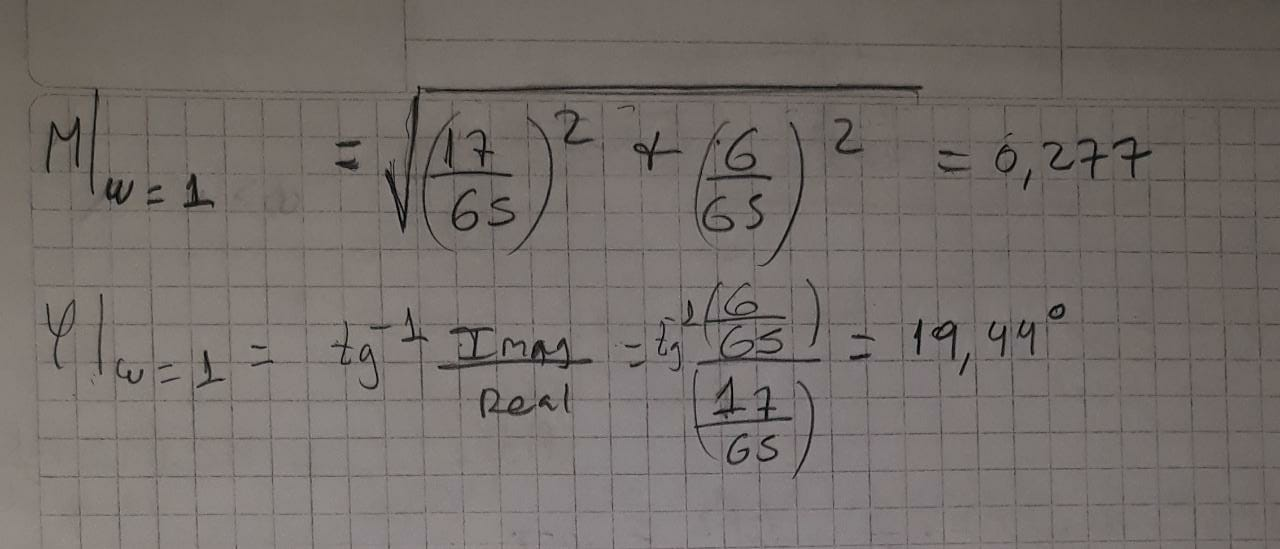 M|w=1 = √((17/65)² + (6/65)²) = 0,277
φ|w=1 = tg⁻¹ Imag/Real = tg⁻¹ (6/65)/(17/65) = 19,44°